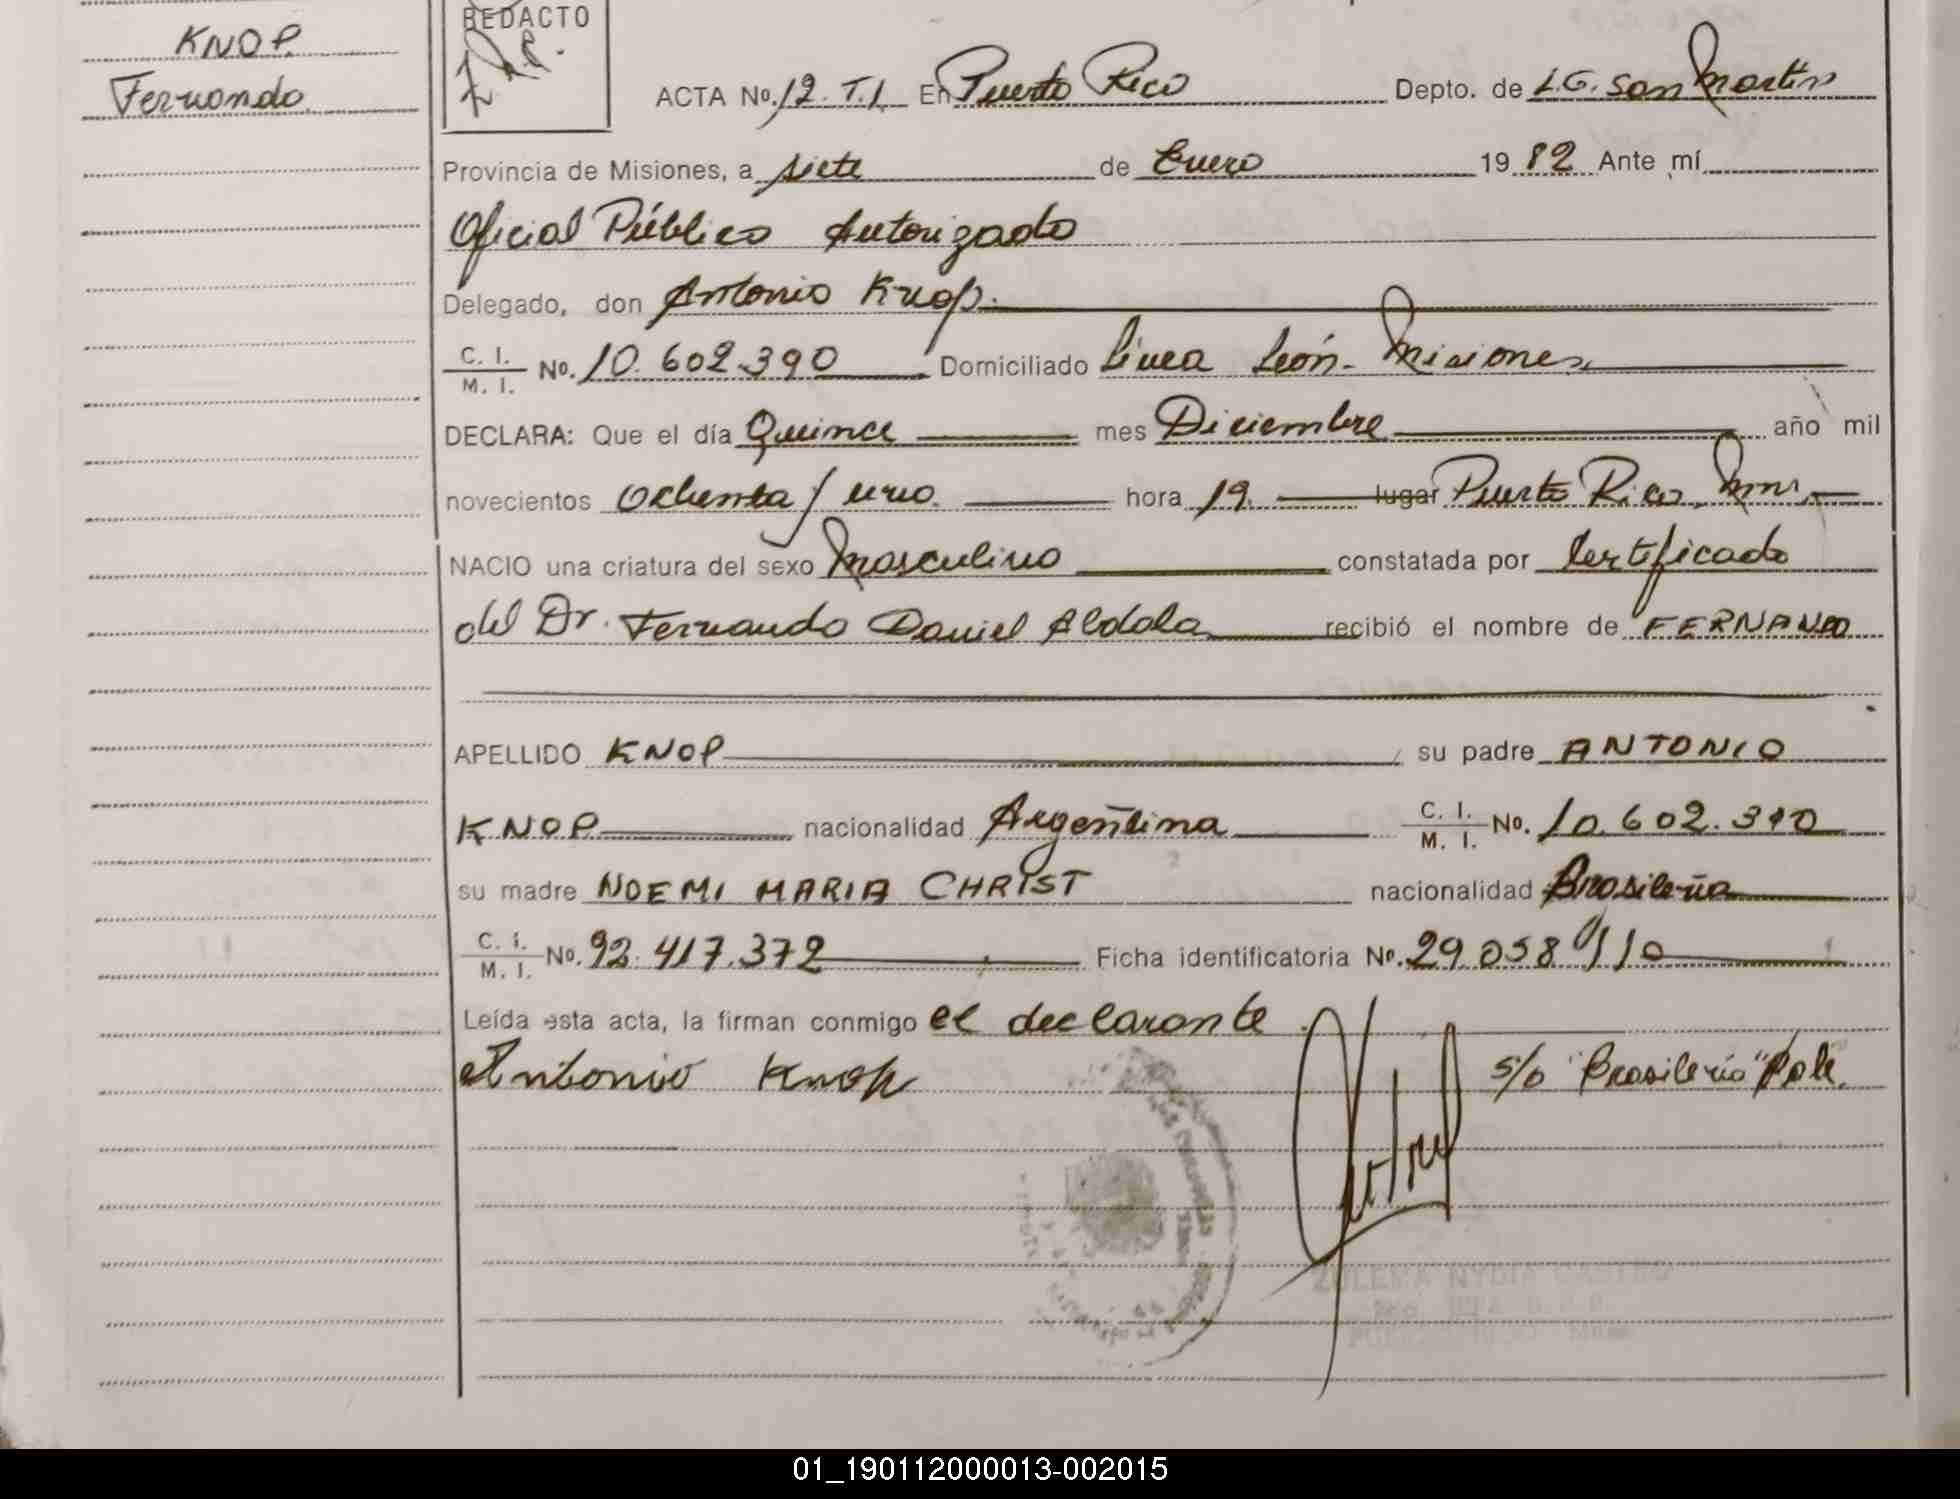 KNOP
Fernando
REDACTO
ACTA No. 12. T.1 En Puerto Rico Depto. de L.G. San Martín
Provincia de Misiones, a siete de Enero 1982 Ante mí
Oficial Público Autorizado
Delegado, don Antonio Knop.
C. I. / M. I. No. 10.602.390 Domiciliado Línea León - Misiones
DECLARA: Que el día Quince mes Diciembre año mil
novecientos ochenta y uno. hora 19. lugar Puerto Rico, Mnes.
NACIO una criatura del sexo masculino constatada por Certificado
del Dr. Fernando Daniel Aldola recibió el nombre de FERNANDO
APELLIDO KNOP su padre ANTONIO
KNOP nacionalidad Argentina C. I. / M. I. No. 10.602.390
su madre NOEMI MARIA CHRIST nacionalidad Brasileña
C. I. / M. I. No. 92.417.372 Ficha identificatoria No. 29.058.910
Leída esta acta, la firman conmigo el declarante.
Antonio Knop s/o "Brasileña" Vale.
ZULEMA NYDIA CASTRO
01_190112000013-002015